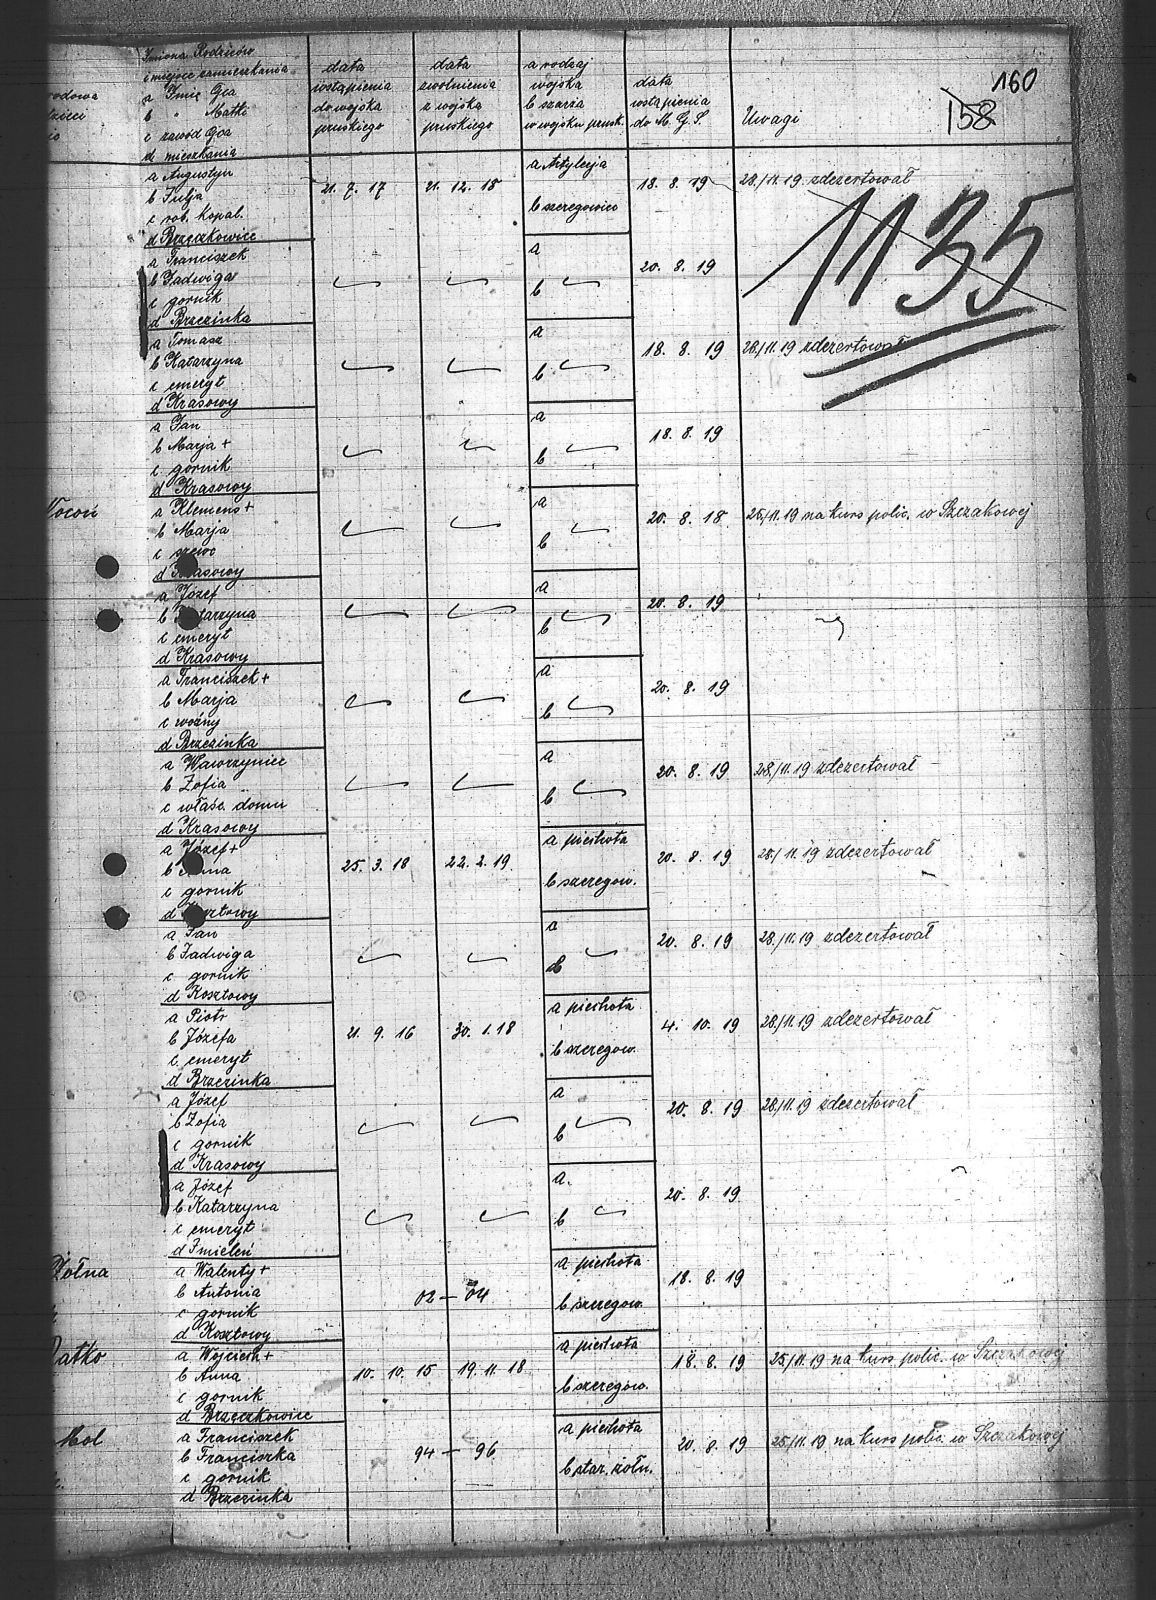 160
158
Imiona Rodziców
i miejsce zamieszkania
a Imię Ojca
b " Matki
c zawód Ojca
d mieszkania
data
wstąpienia
do wojska
pruskiego
data
zwolnienia
z wojska
pruskiego
a rodzaj
wojska
b szarża
w wojsku prusk.
data
wstąpienia
do M. G. S.
Uwagi
1135
a Augustyn
b Julja
c rob. kopal.
d Brzęczkowice
21. 7. 17
21. 12. 18
a Artylerja
b szeregowiec
18. 8. 19
28./11. 19 zdezertował
a Franciszek
b Jadwiga
c gornik
d Brzezinka
a
b
20. 8. 19
a Tomasz
b Katarzyna
c emeryt
d Krasowy
a
b
18. 8. 19
28./11. 19 zdezertował
a Jan
b Marja +
c gornik
d Krasowy
a
b
18. 8. 19
Kocoń
a Klemens +
b Marja
c szewc
d Krasowy
a
b
20. 8. 18
25./11. 19 na kurs polic. w Szczakowej
a Józef
b Katarzyna
c emeryt
d Krasowy
a
b
20. 8. 19
a Franciszek +
b Marja
c woźny
d Brzezinka
a
b
20. 8. 19
a Wawrzyniec
b Zofia
c właśc. domu
d Krasowy
a
b
20. 8. 19
28./11. 19 zdezertował
a Józef +
b Anna
c gornik
d Kosztowy
25. 3. 18
22. 2. 19
a piechota
b szeregow.
20. 8. 19
28./11. 19 zdezertował
a Jan
b Jadwiga
c gornik
d Kosztowy
a
b
20. 8. 19
28./11. 19 zdezertował
a Piotr
b Józefa
c emeryt
d Brzezinka
21. 9. 16
30. 1. 18
a piechota
b szeregow.
4. 10. 19
28./11. 19 zdezertował
a Józef
b Zofia
c gornik
d Krasowy
a
b
20. 8. 19
28./11. 19 zdezertował
a Józef
b Katarzyna
c emeryt
d Imieleń
a.
b
20. 8. 19
Żołna
a Walenty +
b Antonia
c gornik
d Kosztowy
02 — 04
a piechota
b szeregow.
18. 8. 19
a Wojciech +
b Anna
c gornik
d Brzęczkowice
10. 10. 15
19. 11. 18
a piechota
b szeregow.
18. 8. 19
25/11. 19 na kurs polic. w Szczakowej
a Franciszek
b Franciszka
c gornik
d Brzezinka
94 — 96
a piechota
b star. żołn.
20. 8. 19
25/11. 19 na kurs polic. w Szczakowej